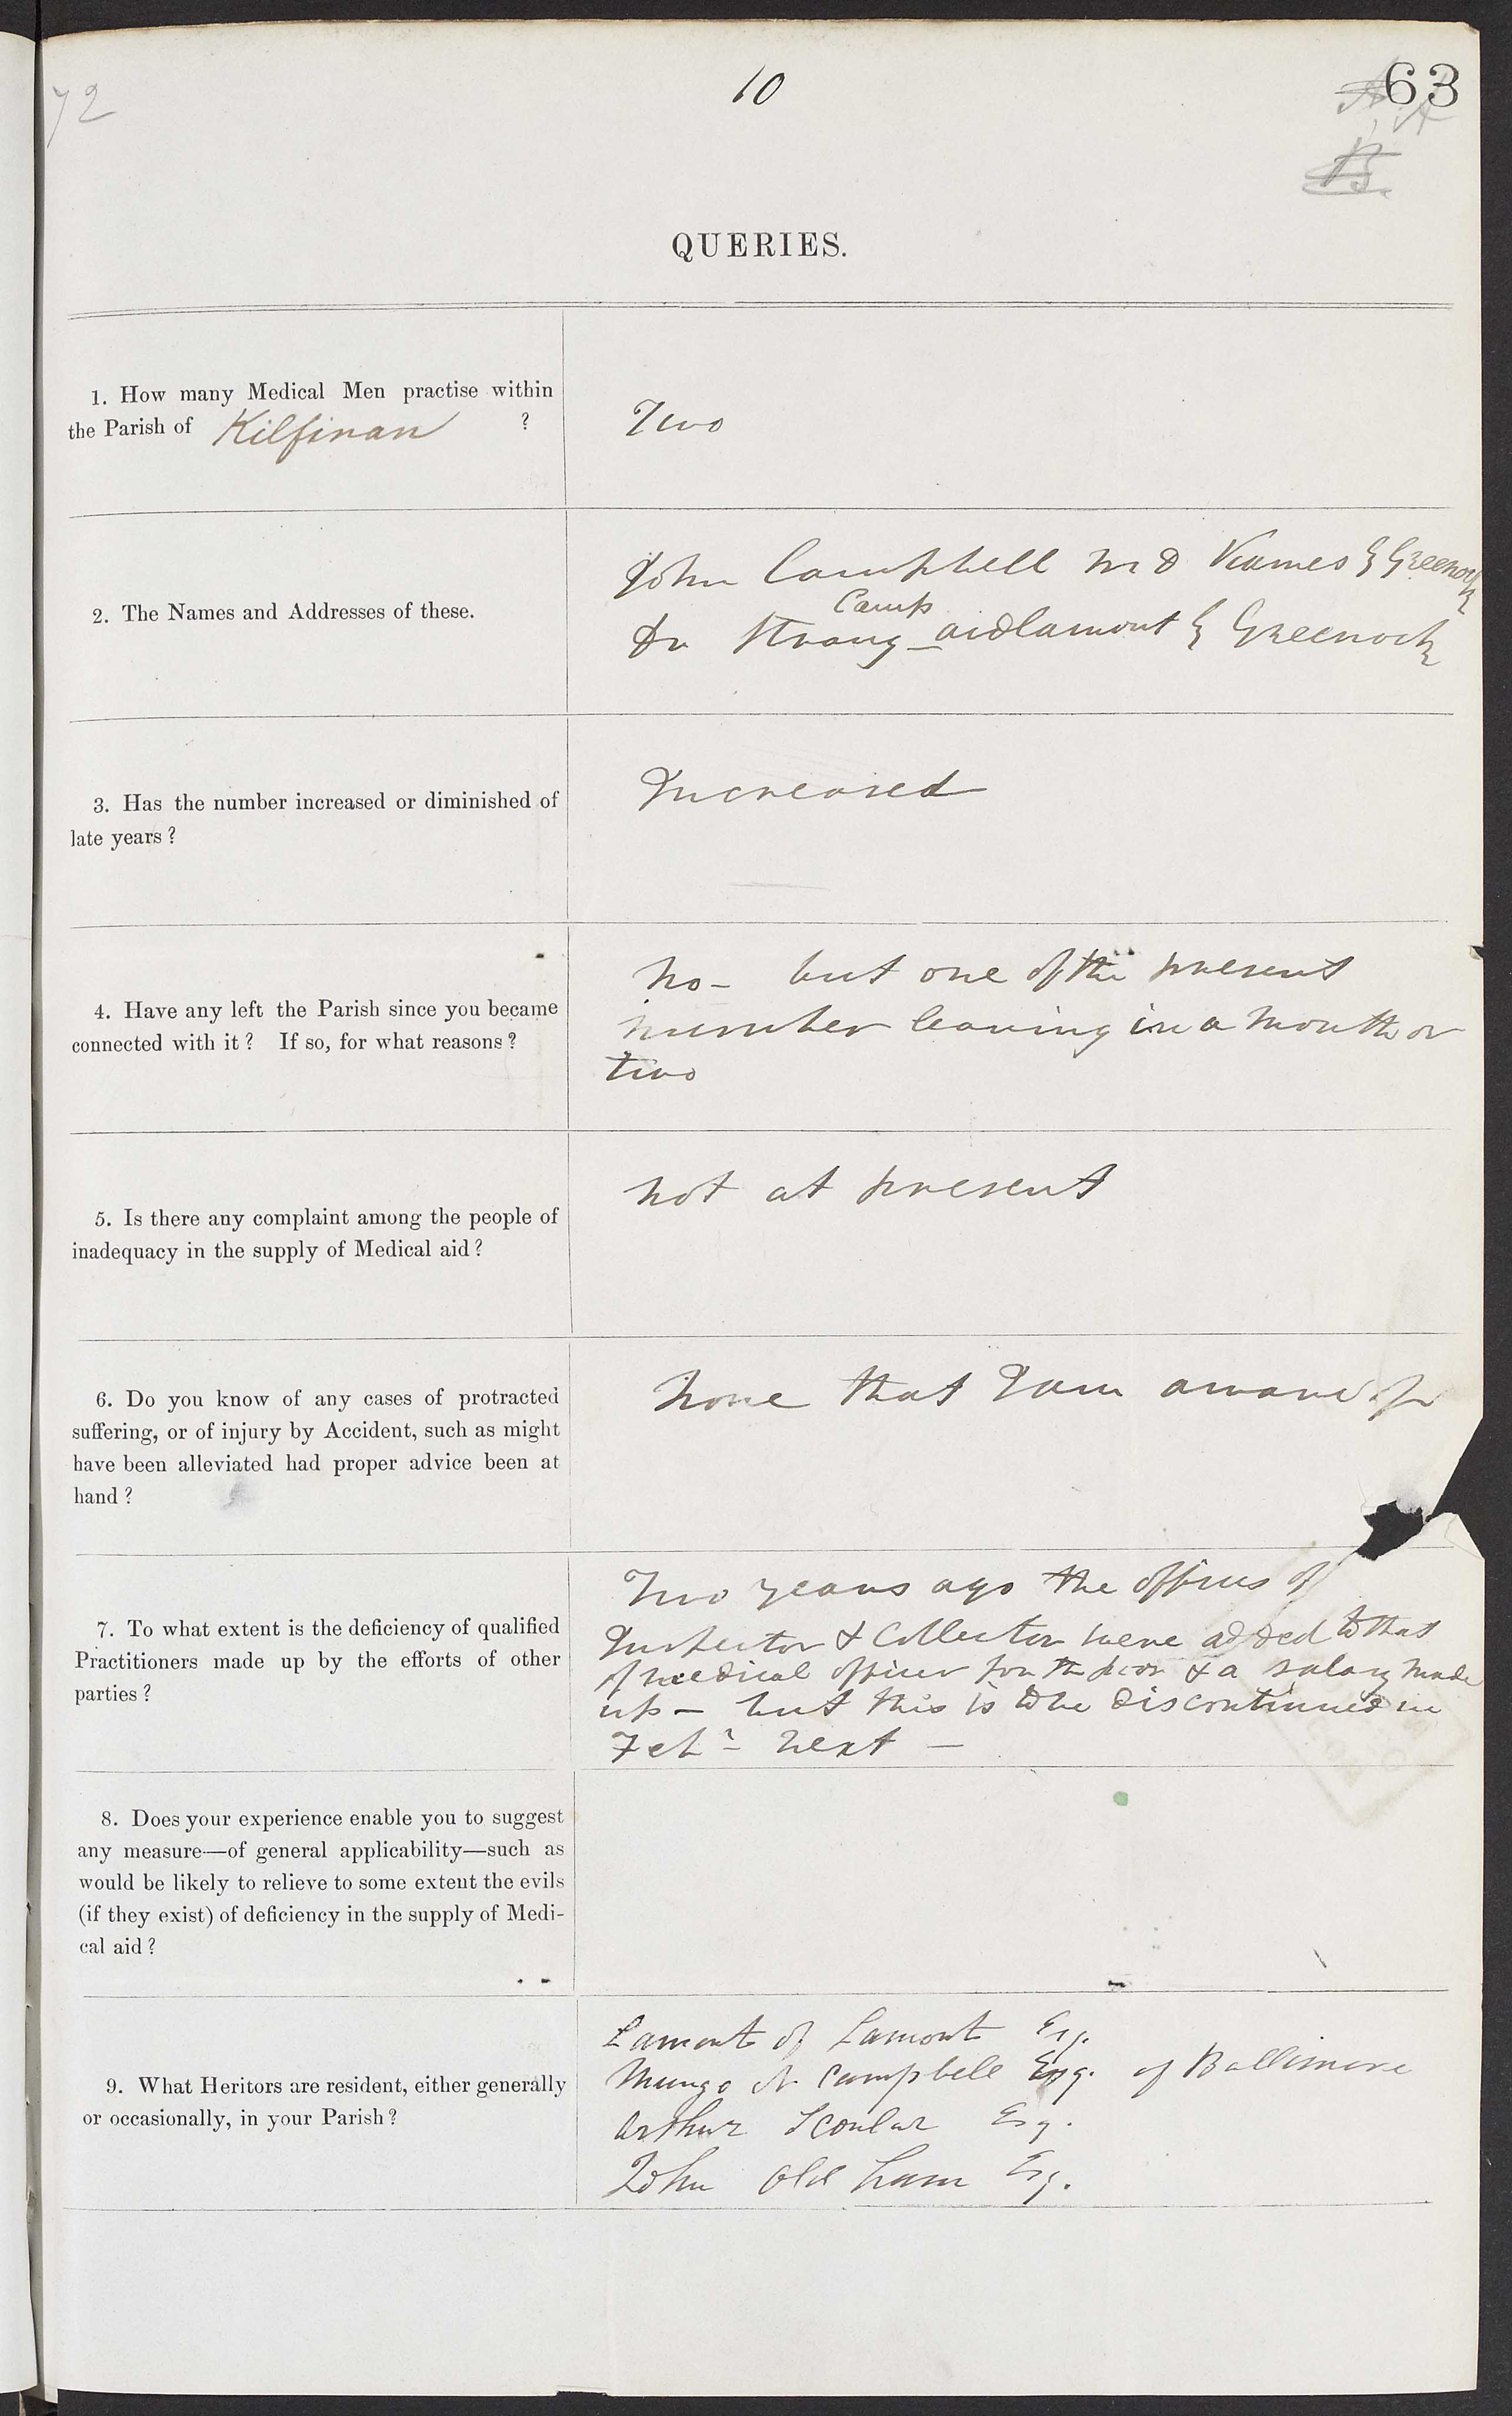 72
10
63
QUERIES.
1. How many Medical Men practise within
the Parish of Kilfinan ?
Two
2. The Names and Addresses of these.
John Campbell M D Kames by Greenock
Camp
Dr Strang - ardlamont by Greenock
3. Has the number increased or diminished of
late years ?
Increased
4. Have any left the Parish since you became
connected with it ? If so, for what reasons ?
No - but one of the present
number leaving in a month or
two
5. Is there any complaint among the people of
inadequacy in the supply of Medical aid ?
Not at present
6. Do you know of any cases of protracted
suffering, or of injury by Accident, such as might
have been alleviated had proper advice been at
hand ?
None that I am aware of
7. To what extent is the deficiency of qualified
Practitioners made up by the efforts of other
parties ?
Two years ago the offices of
Inspector & Collector were added to that
of medical officer for the poor & a salary made
up - but this is to be discontinued in
Feby next -
8. Does your experience enable you to suggest
any measure—of general applicability—such as
would be likely to relieve to some extent the evils
(if they exist) of deficiency in the supply of Medi-
cal aid ?
9. What Heritors are resident, either generally
or occasionally, in your Parish ?
Lamont of Lamont Esq.
Mungo N Campbell Esq. of Ballimore
Arthur Scoular Esq.
John Old ham Esq.